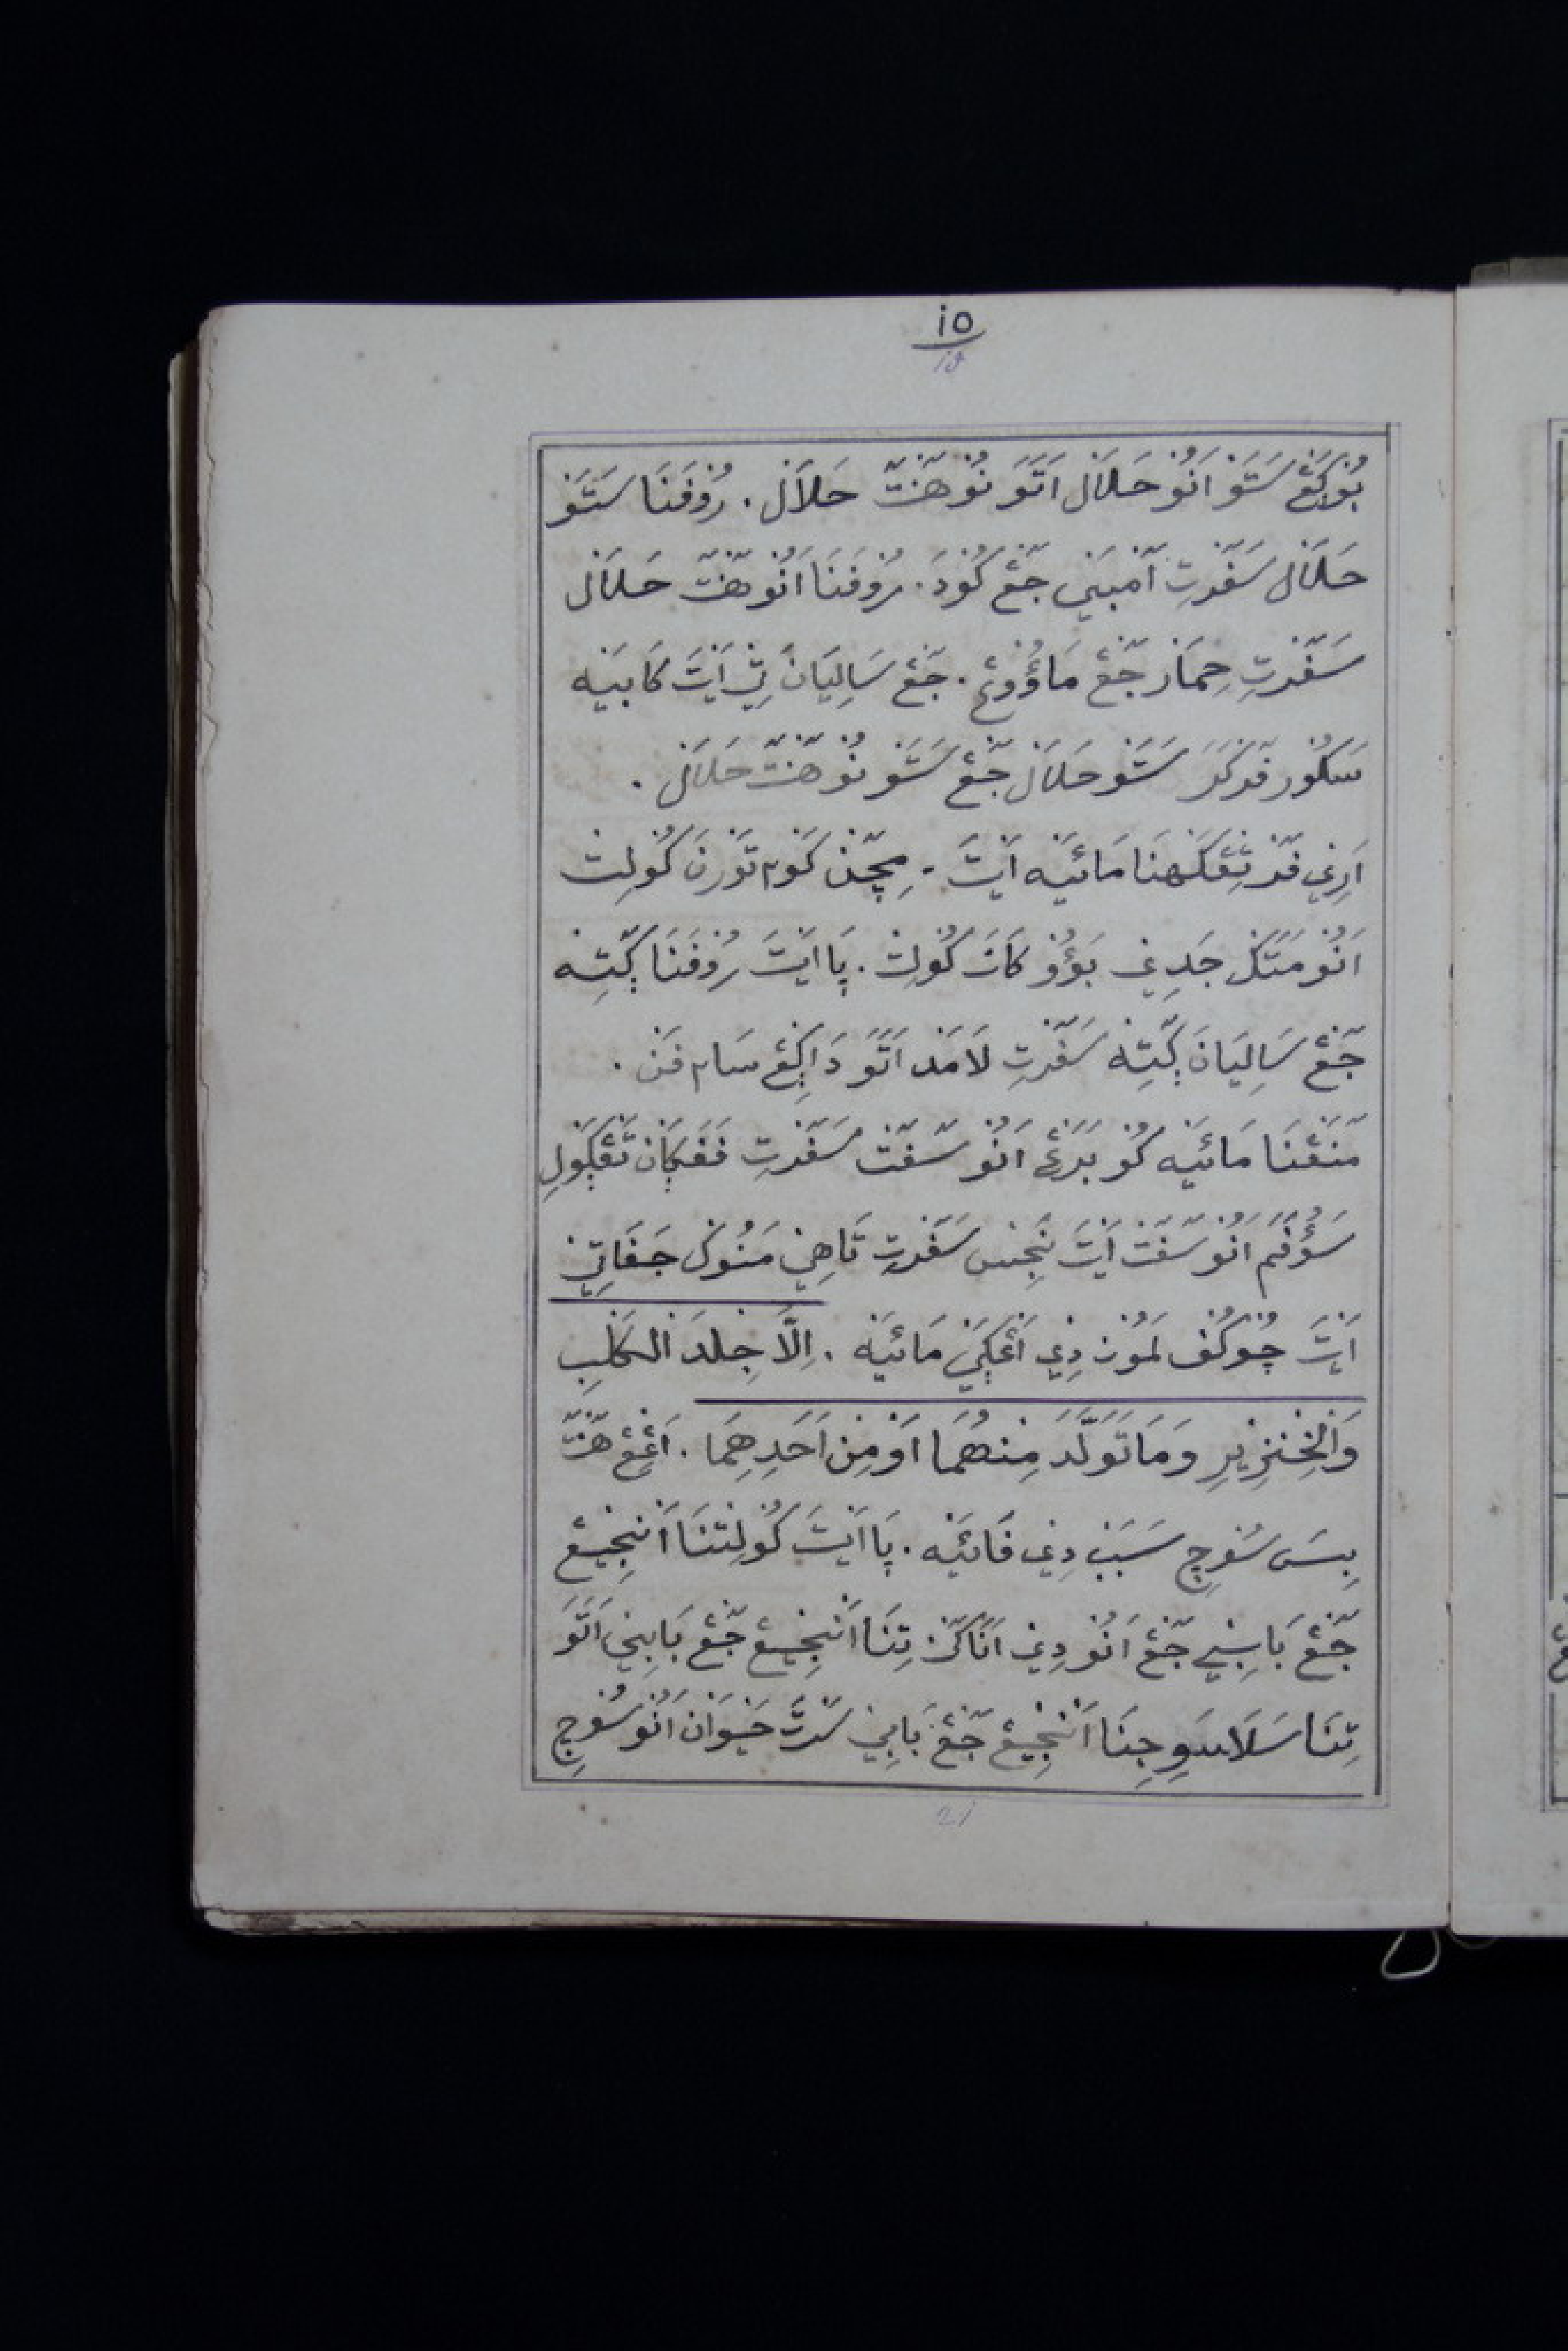 ١٥
بُوكَڠْ سَتَوْ اَنُوْ حَلَالْ اَتَوَ نُوْ هَنْتَ حَلَالْ. رُوْفَنَا سَتَوْ
حَلَالْ سَفَرْتِ اَمْبَيْ جَڠْ كُوْدَ. رُوْفَنَا اَنُوْ هَنْتَ حَلَالْ
سَفَرْتِ حِمَارْ جَڠْ مَاؤُوڠْ. جَڠْ سَالِيَانَ تِيْ اَيْتَ كَابَيْهْ
سَكُوْر فَرْكَرَ سَتَوْ حَلَالْ جَڠْ سَتَوْ نُوْ هَنْتَ حَلَالْ.
اَرِيْ فَرْ تِڠْكَهْنَا مَائَيْهْ اَيْتَ. مِچَنْ كَوْمَ تَوْرَنَ كُوْلِتْ
اَنُوْ مَتَكْ جَدِيْ بَؤُوْ كَانَ كُوْلِتْ. ڮَا اَيْتَ رُوْفَنَا ڮَتِهْ
جَڠْ سَالِيَانَ ڮَتِهْ سَفَرْتِ لَامَدْ اَتَوَ دَاڮِڠْ سَام فَنْ.
مَنَڠْنَا مَائَيْهْ كُوْ بَرَڠْ اَنُوْ سَفَتْ سَفَرْتِ فَفَڮَانْ تَڠْكَوْلِ
سَؤُوْفَمَ اَنُوْ سَفَتْ اَيْتَ نَجِسْ سَفَرْتِ تَاهِيْ مَنُوْكْ جَفَاتِيْ
اَيْتَ چُوْكُفْ لَمُوْنْ دِيْ اَڠْڮَيْ مَائَيْهْ. اِلَّا جِلْدَ الْكَلْبِ
وَالْخِنْزِيْرِ وَمَا تَوَلَّدَ مِنْهُمَا اَوْ مِنْ اَحَدِهِمَا. اَڠِڠْ هَنْتَ
بِسَ سُوْچِ سَبَبْ دِيْ فَائَيْهْ. ڮَا اَيْتَ كُوْلِتْنَا اَنْجِيْڠْ
جَڠْ بَابِيْ جَڠْ اَنُوْ دِيْ اَنَاكَنْ تِنَا اَنْجِيْڠْ جَڠْ بَابِيْ اَتَوَ
تِنَا سَلَا سَوِجِنَا اَنْجِيْڠْ جَڠْ بَابِيْ سَرْتَ حَيْوَانْ اَنُوْ سُوْچِ
21